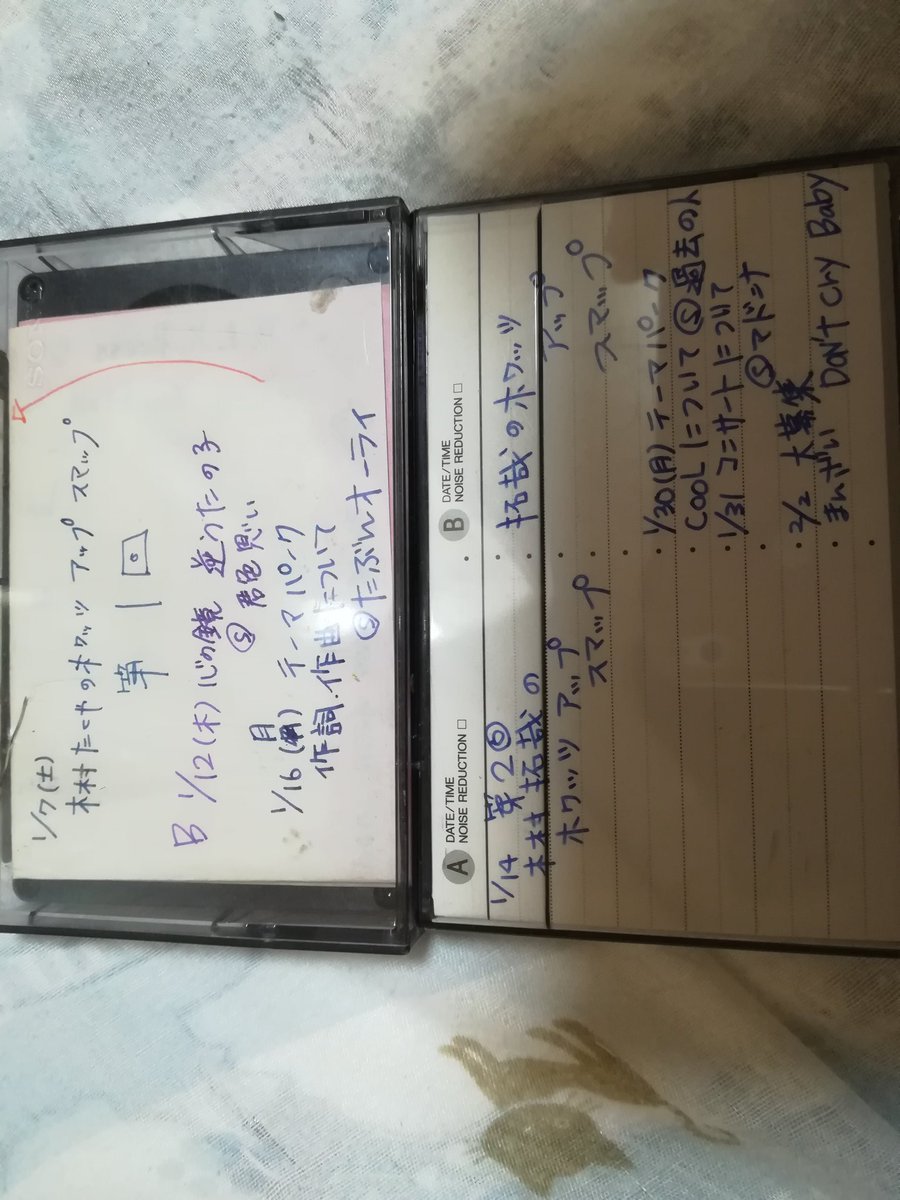 SONY
1/7(土)
木村たくやのホワッツ アップ スマップ
第1回
B 1/12(木)心の鏡 逆うたの子
Ⓢ君色思い
1/16(月) テーマパーク
作詞・作曲について
Ⓢたぶんオーライ
A DATE/TIME
NOISE REDUCTION □
B DATE/TIME
NOISE REDUCTION □
1/14 第2回
木村拓哉の
ホワッツ アップ
スマップ
拓哉のホワッツ
アップ
スマップ
1/30(月)テーマパーク
COOLについて Ⓢ過去の人
1/31 コンサートについて
Ⓢマドンナ
2/2 大募集
まんざい DON'T Cry Baby